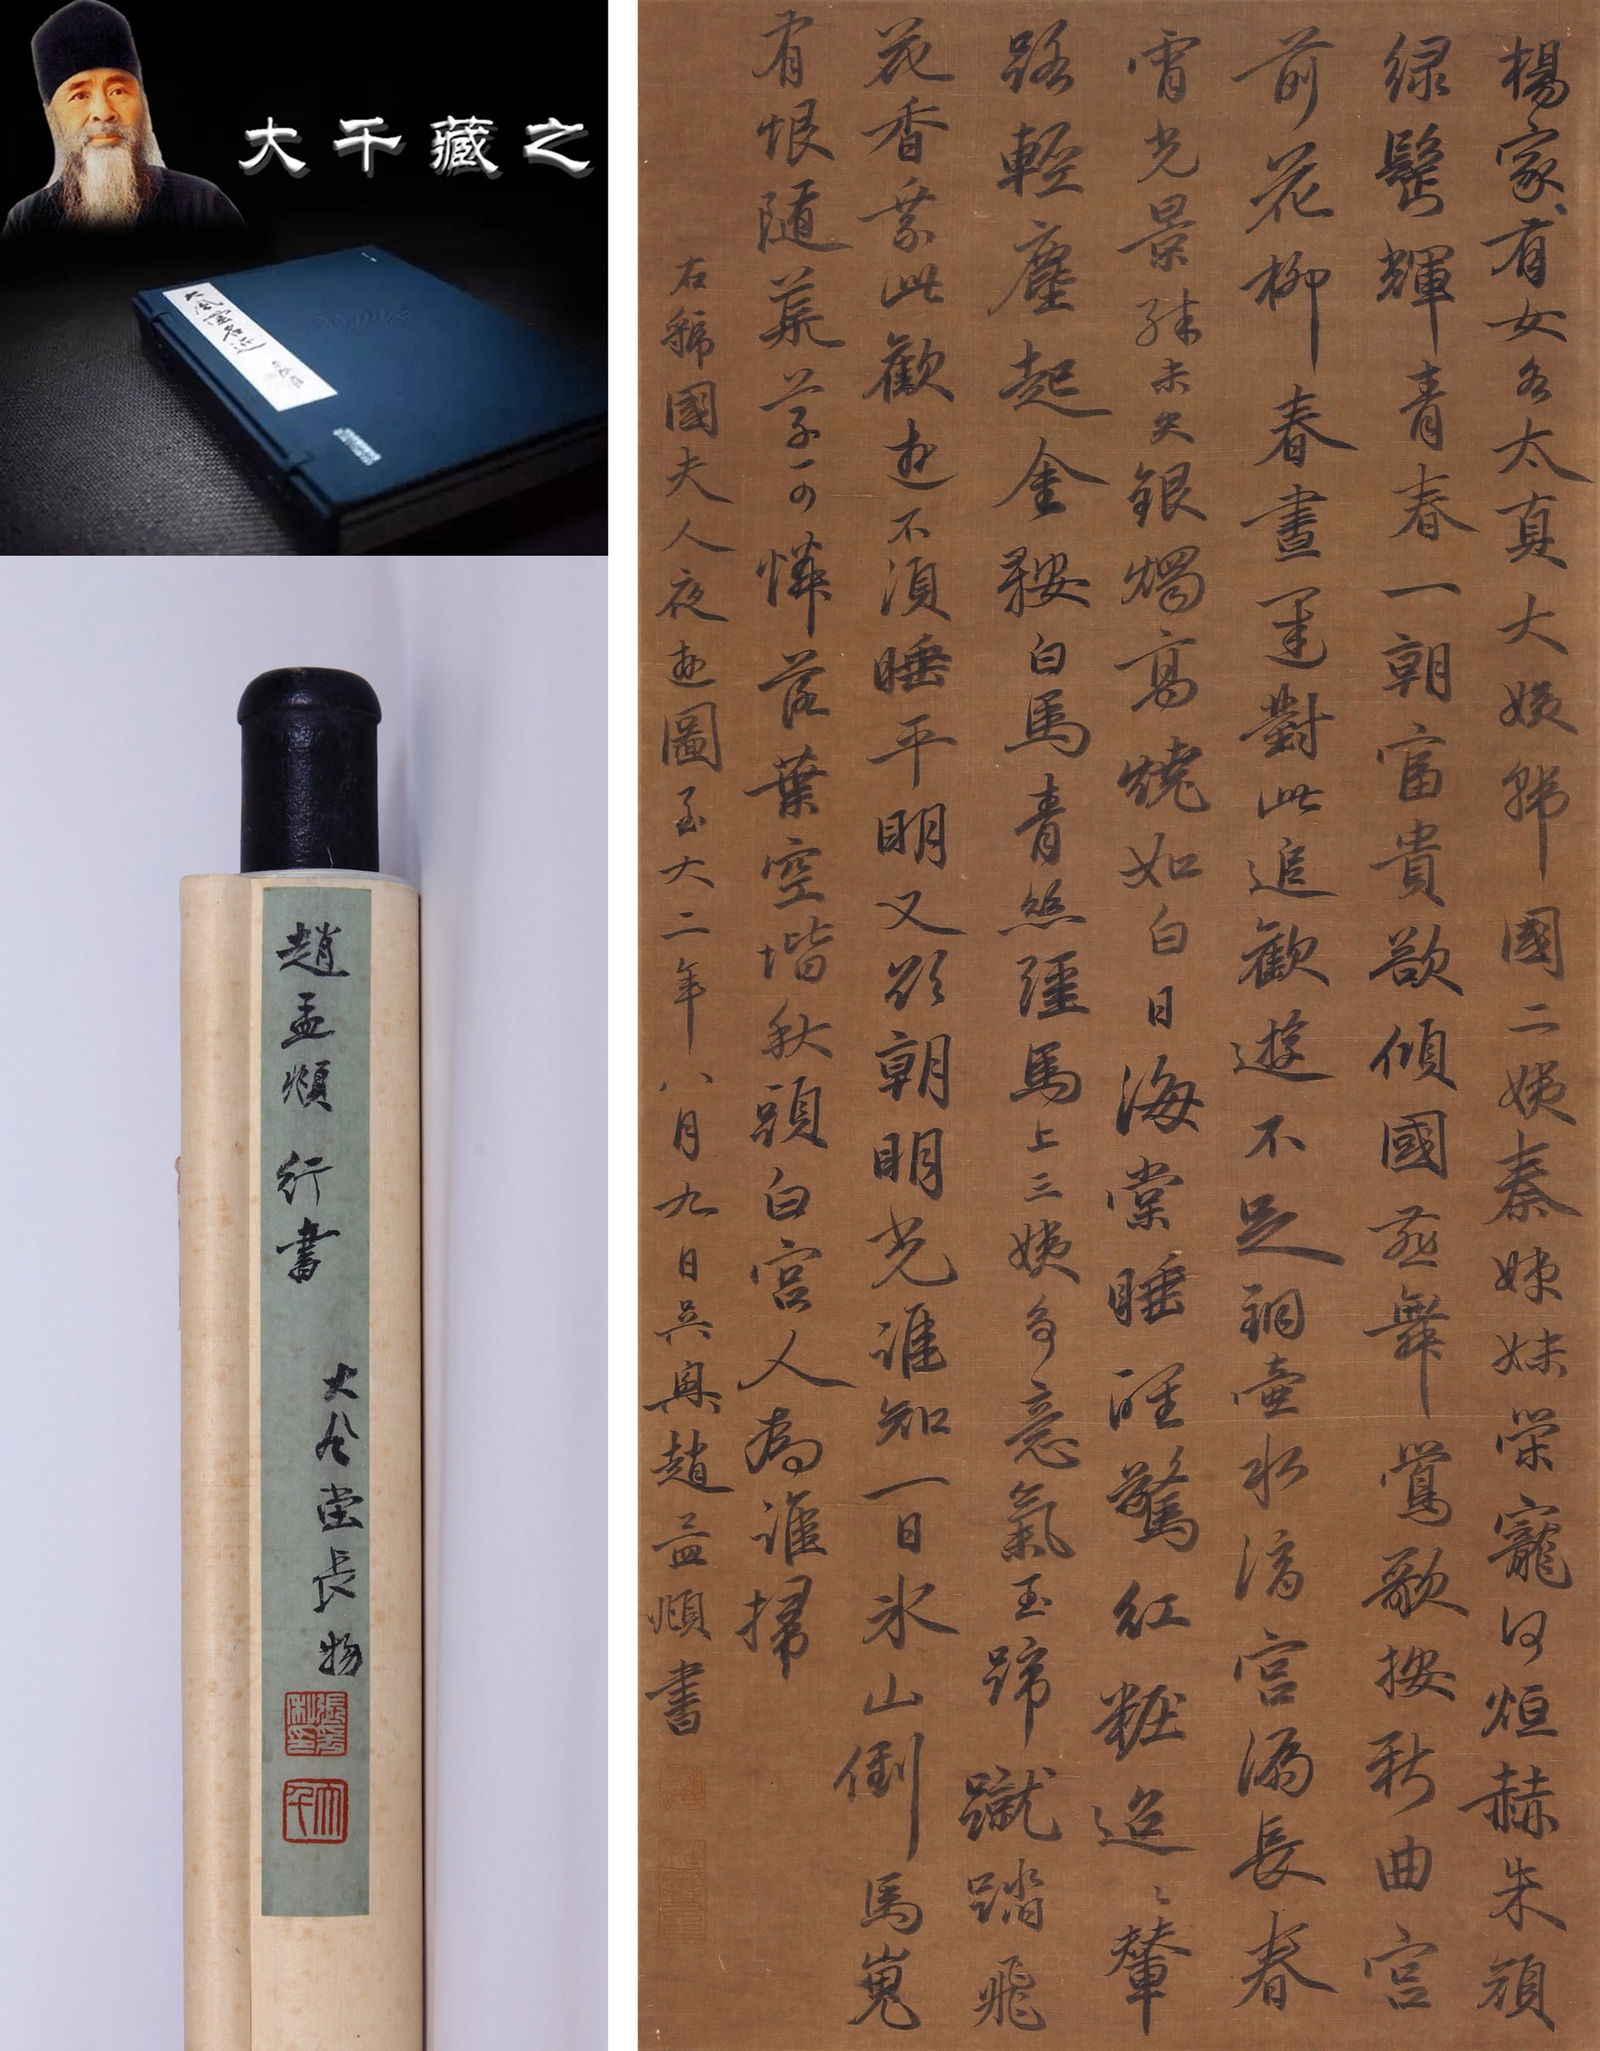 大千藏之
大風堂名迹
趙孟頫 行書
大風堂長物
楊家有女名太真大姨虢國二姨秦姊妹榮寵何烜赫朱顏
緑鬢輝青春一朝富貴欲傾國燕舞鶯歌按新曲宮
前花柳春晝遲對此追歡遊不足銅壺水滴宮漏長春
宵光景殊未央銀燭高燒如白日海棠睡醒驚紅粧迢〻輦
路輕塵起金鞍白馬青絲韁馬上三姨多意氣玉蹄蹴踏飛
花香乘此歡遊不須睡平明又欲朝明光誰知一日氷山倒馬嵬
有恨隨荒草可憐落葉空堦秋頭白宮人為誰掃
右虢國夫人夜遊圖至大二年八月九日吳興趙孟頫書